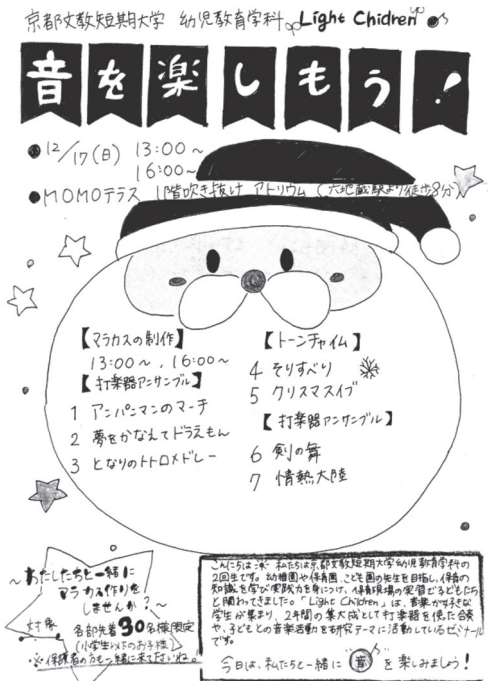 京都文教短期大学 幼児教育学科 Light Chidren
音を楽しもう!
●12/17(日) 13:00～
16:00～
●MOMOテラス 1階吹き抜け アトリウム(六地蔵駅より徒歩8分)
【マラカスの制作】
13:00～, 16:00～
【打楽器アンサンブル】
1 アンパンマンのマーチ
2 夢をかなえてドラえもん
3 となりのトトロメドレー
【トーンチャイム】
4 そりすべり
5 クリスマスイブ
【打楽器アンサンブル】
6 剣の舞
7 情熱大陸
～わたしたちと一緒に
マラカス作りを
しませんか?～
対象
各部先着30名様限定
(小学生以下のお子様)
※保護者の方も一緒に来て下さいね。
こんにちは 私たちは京都文教短期大学幼児教育学科の
2回生です。幼稚園や保育園、こども園の先生を目指し、保育の
知識を学び実践力を身につけ、保育現場の実習で子どもたち
と関わってきました。「Light Children」は、音楽が好きな
学生が集まり、2年間の集大成として打楽器を使た合奏
や、子どもとの音楽活動を研究テーマに活動しているゼミナール
です。
今日は、私たちと一緒に"音"を楽しみましょう!